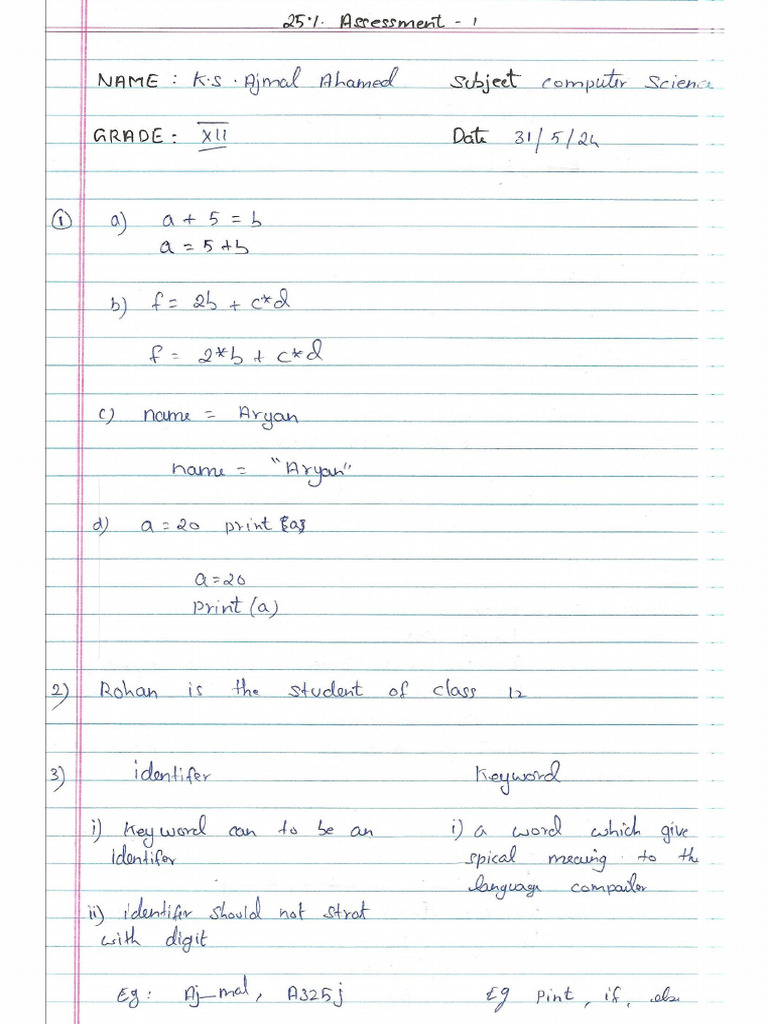 25%. Assessment - 1
NAME : K.S. Ajmal Ahamed Subject computer Scienc
GRADE : XII Date 31/5/24
① a) a + 5 = b
a = 5 + b
b) f = 2b + c*d
f = 2*b + c*d
c) name = Aryan
name = "Aryan"
d) a = 20 print {a}
a = 20
print (a)
2) Rohan is the student of class 12
3) identifer Keyword
i) Keyword can to be an i) a word which give
identifer spical meaning to the
language compailer
ii) identifer should not strat
with digit
Eg: Aj_mal, A325j Eg Pint, if, else